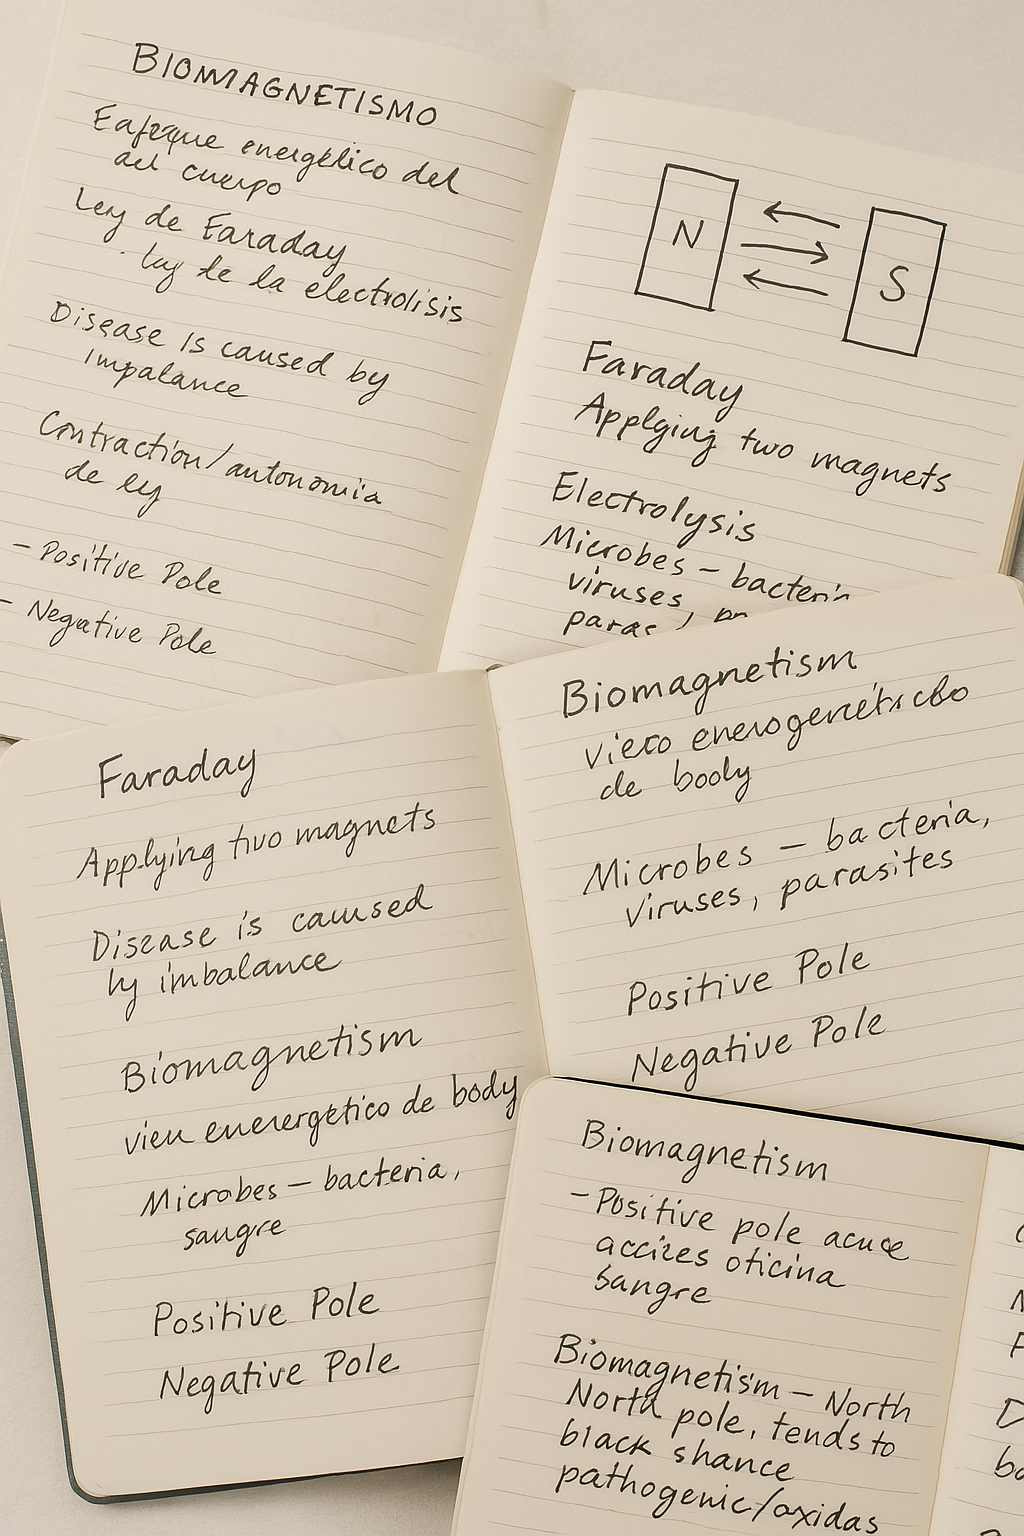 BIOMAGNETISMO
energélico del
del cuerpo
Ley de Faraday
ley de la electrolísis
Disease is caused by
impalance
Contraction/autonomía
de ey
- Positive Pole
- Negative Pole
N
S
Faraday
Applying two magnets
Electrolysis
Microbes – bacteria
viruses,
paras
Biomagnetism
de body
Microbes – bacteria,
viruses, parasites
Positive Pole
Negative Pole
Faraday
Applying two magnets
Disease is caused
by imbalance
Biomagnetism
de body
Microbes – bacteria,
sangre
Positive Pole
Negative Pole
Biomagnetism
- Positive pole
oticina
sangre
Biomagnetism – North
pole, tends to
black shance
pathogenic/oxidas